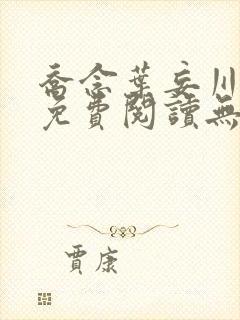 喬念葉妄川
免費閱讀無
賈康